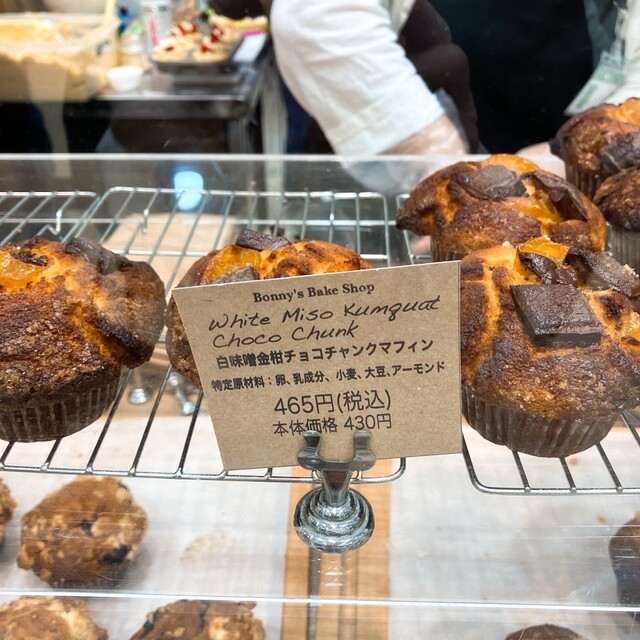 Bonny's Bake Shop
White Miso Kumquat
Choco Chunk
白味噌金柑チョコチャンクマフィン
特定原材料：卵、乳成分、小麦、大豆、アーモンド
465円(税込)
本体価格 430円